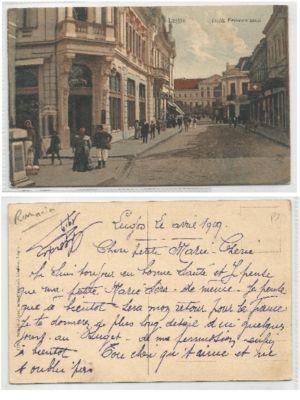 Lugos
Deák Ferenc utca
Romania
Lugos le avril 1919
Chère petite Marie Chérie
Je suis toujours en bonne santé et je pense
que ma petite Marie sera de meme. Je pense
que a bientot sera mon retour pour la France
je te donnerez plus long detail d'un quelques
jours au sujet de ma permission enfin
a bientot Ton cheri qui t'aime et ne
t'oubli pas